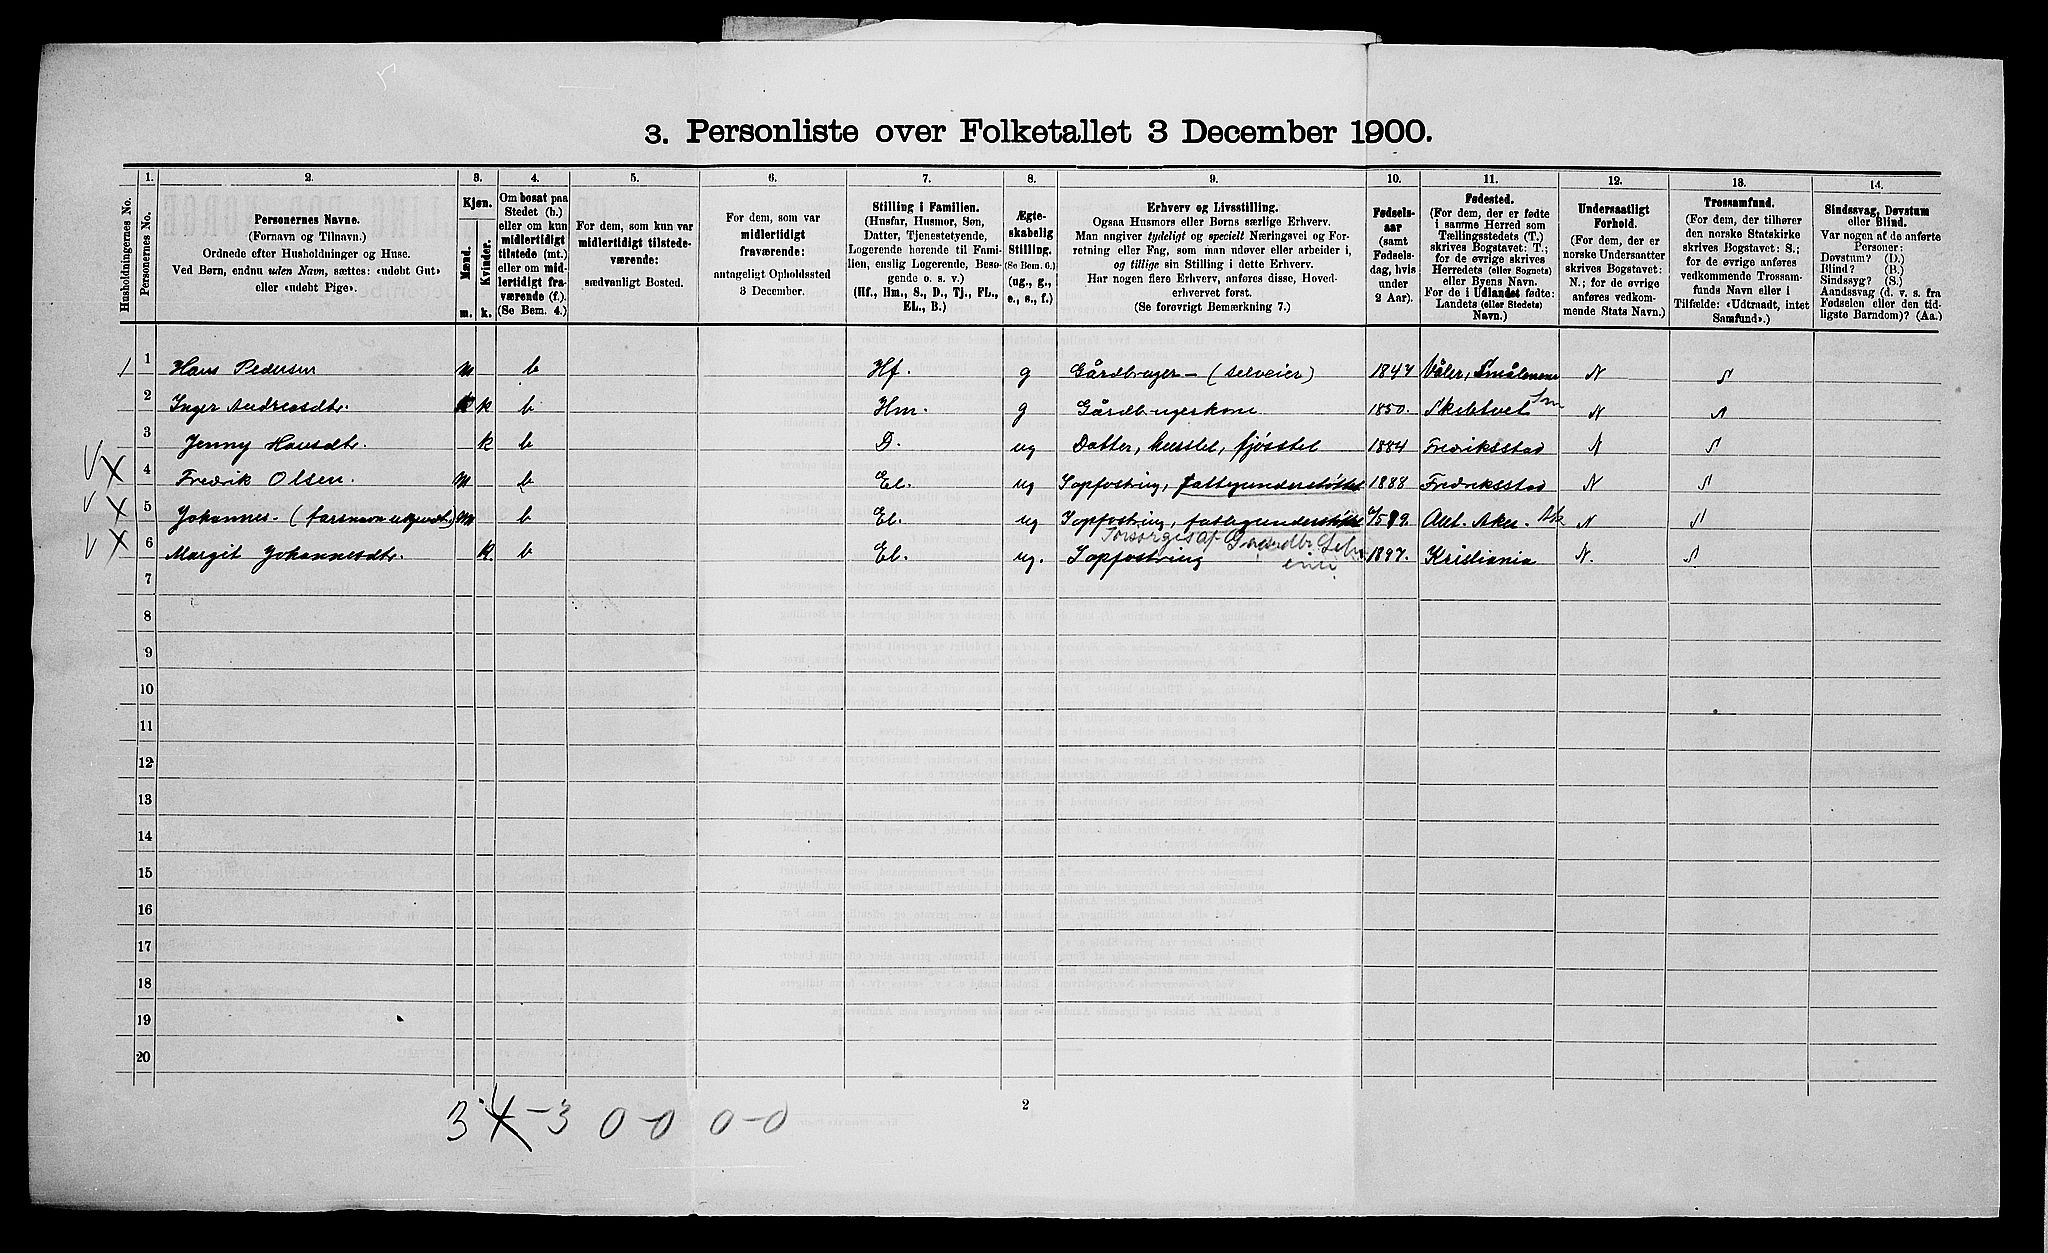 3. Personliste over Folketallet 3 December 1900.
1. 2. 3. 4. 5. 6. 7. 8. 9. 10. 11. 12. 13. 14.
Husholdningernes No.
Personernes No.
Personernes Navne.
(Fornavn og Tilnavn.)
Ordnede efter Husholdninger og Huse.
Ved Børn, endnu uden Navn, sættes: «udøbt Gut»
eller «udøbt Pige».
Kjøn.
Mænd.
Kvinder.
m. k.
Om bosat paa
Stedet (b.)
eller om kun
midlertidigt
tilstede (mt.)
eller om mid-
lertidigt fra-
værende (f.).
(Se Bem. 4.)
For dem, som kun var
midlertidigt tilstede-
værende:
sædvanligt Bosted.
For dem, som var
midlertidigt
fraværende:
antageligt Opholdssted
3 December.
Stilling i Familien.
(Husfar, Husmor, Søn,
Datter, Tjenestetyende,
Logerende hørende til Fami-
lien, enslig Logerende, Besø-
gende o. s. v.)
(Hf., Hm., S., D., Tj., FL.,
EL., B.)
Ægte-
skabelig
Stilling.
(Se Bem. 6.)
(ug., g.,
e., s., f.)
Erhverv og Livsstilling.
Ogsaa Husmors eller Børns særlige Erhverv.
Man angiver tydeligt og specielt Næringsvei og For-
retning eller Fag, som man udøver eller arbeider i,
og tillige sin Stilling i dette Erhverv.
Har nogen flere Erhverv, anføres disse, Hoved-
erhvervet først.
(Se forøvrigt Bemærkning 7.)
Fødsels-
aar
(samt
Fødsels-
dag, hvis
under
2 Aar).
Fødested.
(For dem, der er fødte
i samme Herred som
Tællingsstedets (T.)
skrives Bogstavet: T.;
for de øvrige skrives
Herredets (eller Sognets)
eller Byens Navn.
For de i Udlandet fødte:
Landets (eller Stedets)
Navn.)
Undersaatligt
Forhold.
(For dem, der er
norske Undersaatter
skrives Bogstavet:
N.; for de øvrige
anføres vedkom-
mende Stats Navn.)
Trossamfund.
(For dem, der tilhører
den norske Statskirke
skrives Bogstavet: S.;
for de øvrige anføres
vedkommende Trossam-
funds Navn eller i
Tilfælde: «Udtraadt, intet
Samfund».)
Sindssvag, Døvstum
eller Blind.
Var nogen af de anførte
Personer:
Døvstum? (D.)
Blind? (B.)
Sindssyg? (S.)
Aandssvag (d. v. s. fra
Fødselen eller den tid-
ligste Barndom)? (Aa.)
1 1 Hans Pedersen m b Hf. g Gårdbruger - (selveier) 1847 Våler, Smålenene N S
2 Inger Andreasdtr. k b Hm. g Gårdbrugerkone 1850. Skibtvet Sm N S
3 Jenny Hansdtr. k b D. ug Datter, husstel, fjøsstel 1884 Fredriksstad N S
4 Fredrik Olsen. m b El. ug I opfostring, fattigunderstøttet 1888 Fredriksstad N S
5 Johannes - ( m b El. ug I opfostring, fattigunderstøttet Aker. Ak N S
Forsørges af
6 Margit Johannesdtr. k b El. ug. I opfostring 1897. Kristiania N. S
7
8
9
10
11
12
13
14
15
16
17
18
19
20
2
3 X - 3 0-0 0-0